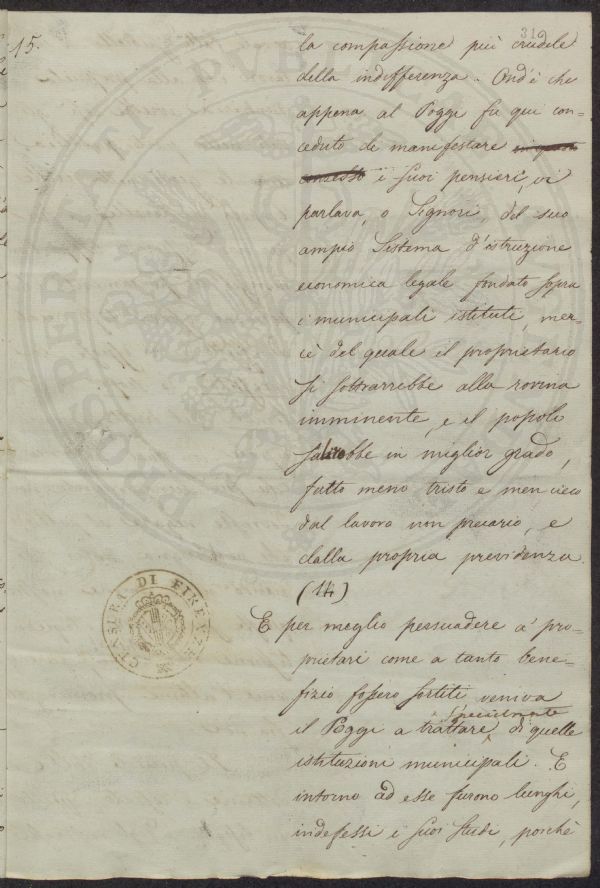 15.
312
la compassione più crudele
della indifferenza. Ond'è che
appena al Poggi fu qui con=
ceduto di manifestare in questo
consesso i suoi pensieri, vi
parlava, o Signori, del suo
ampio Sistema d'istruzione
economica legale fondato sopra
i municipali istituti, mer=
cè del quale il proprietario
si sottrarrebbe alla rovina
imminente, e il popolo
salirebbe in miglior grado,
fatto meno tristo e men cieco
dal lavoro non precario, e
dalla propria previdenza.
(14)
E per meglio persuadere a' pro=
prietari come a tanto bene=
fizio fossero sortiti, veniva
specialmente
il Poggi a trattare di quelle
istituzioni municipali. E
intorno ad esse furono lunghi,
indefessi i suoi studi, poichè
PROSPERITATI PVB
DI FIRENZE